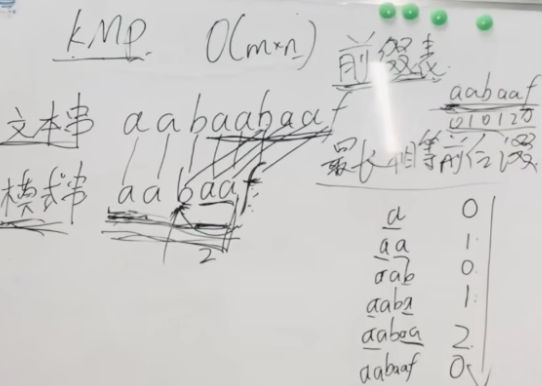 KMP O(m×n)
前缀表
文本串 aabaabaaf
模式串 aabaaf
2
aabaaf
010120
最长相等前后缀
a 0
aa 1
aab 0
aaba 1
aabaa 2
aabaaf 0